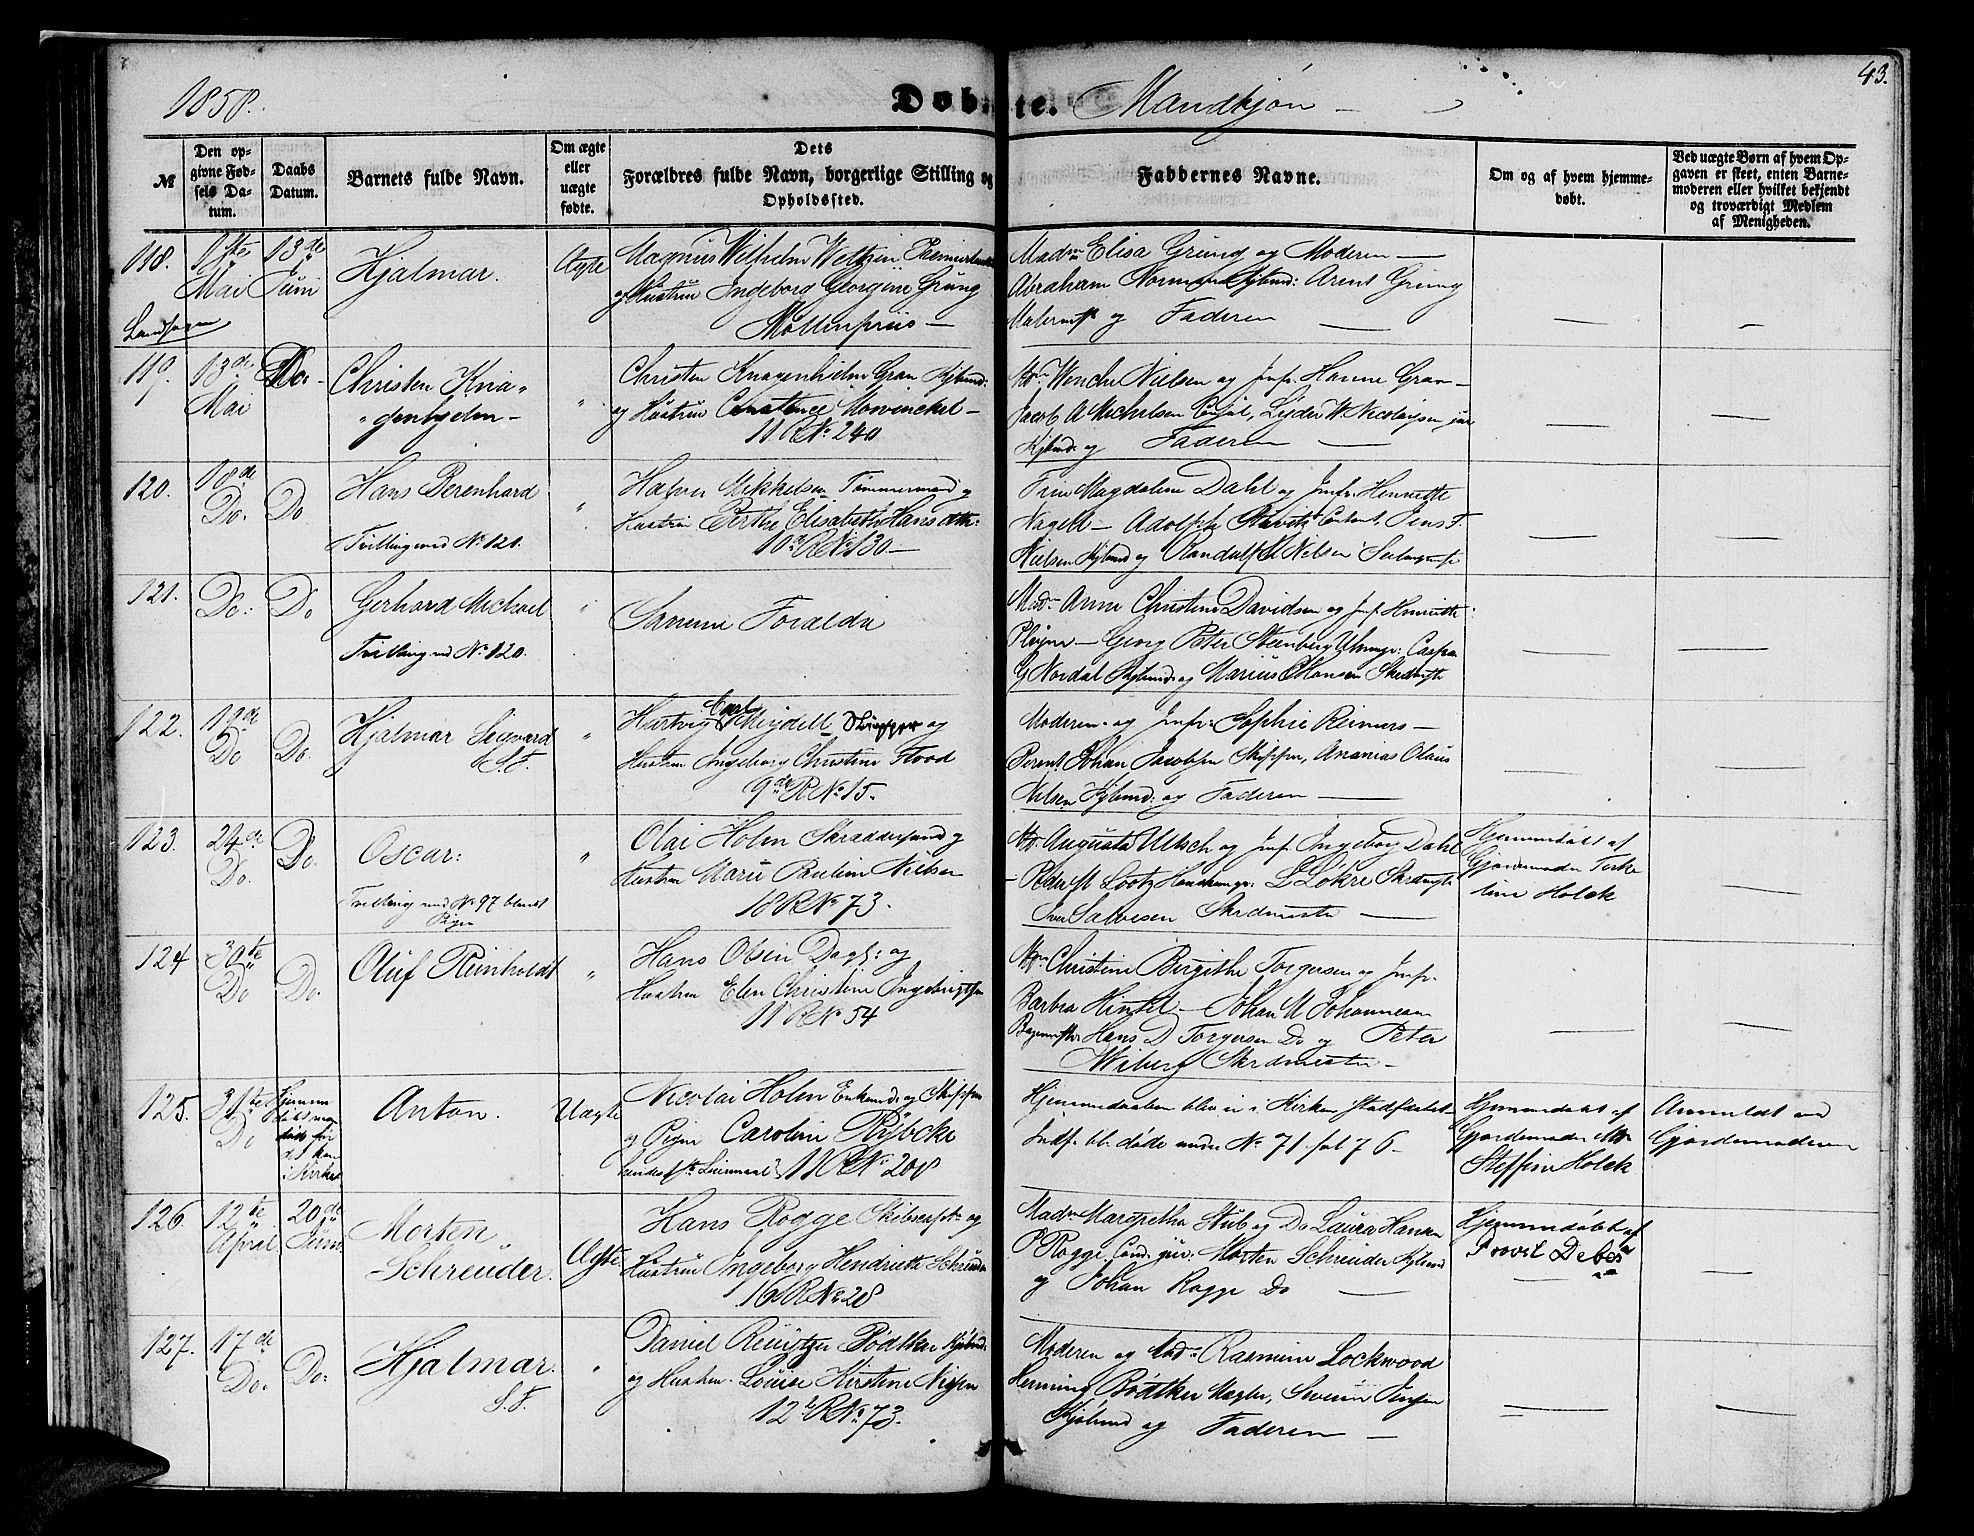 43.
1858.
Døbte. Mandkjøn
№
Den opgivne Fødsels Datum.
Daabs Datum.
Barnets fulde Navn.
Om ægte eller uægte fødte.
Dets Forældres fulde Navn, borgerlige Stilling og Opholdssted.
Faddernes Navne.
Om og af hvem hjemmedøbt.
Ved uægte Børn af hvem Opgaven er skeet, enten Barnemoderen eller hvilket bekjendt og troværdigt Medlem af Menigheden.
118.
Landsogn
1ste Mai
13de Juni
Hjalmar.
Ægte
Magnus Wilhelm
og Hustrue Ingeborg Georgine Grung
Møllenpriis
Madm Elisa Grung og Moderen
Abraham Norman Kjøbmd: Arent Grung
og Faderen
119.
13de Mai
Do.
Christen Knagenhjelm
"
Christen Knagenhjelm Gran Kjbmd:
og Hustrue Constance Mowinckel
11 R No 240
Wenche Nielsen og Jmfr. Hanne Gran
Jacob A Michelsen Consul, Lyder W. Nicolaysen jun
Kjbmd: og Faderen
120.
18de Do.
Do
Hans Berenhard
Tvilling med No 121.
"
Halvor Mikkelsen Tømmermand og
Hustrue Berthe Elisabeth Hansdtr:
10de R No 130
Magdalene Dahl og Jmfr. Henriette
Nagell Adolph Jens F.
Nielsen Kjbmd og Randulf Nilsen
121.
Do.
Do
Gerhard Michael
Tvilling med No 120.
"
Samme Forældre
Madm Anne Christine Davidsen og Jmf. Henriette
Georg Peter Steenberg Uhrmgr: Caspar
G Nordal Kjbmd. og Marius Hansen
122.
19de Do
Do.
Hjalmar Sigvard
S. F.
"
Hartvig Carl Skipper og
Hustrue Ingeborg Christine Flood
9de R No 15.
Moderen og Jmfr. Sophie Reimers
Johan Jacobsen Skipper, Ananias Olaus
Nilsen Kjbmd: og Faderen
123.
24de Do.
Do.
Oscar:
Tvilling med No 97 blandt Pigerne
"
Olai Holm Skræddersvend og
Hustrue Marie Pauline Nilsen
18 R No 73.
Augusta Ultsch og Jmf. Ingeborg Dahl
Peder M Lootz L Løkre
Salvesen Skrdmester
Hjemmedøbt af Gjordemoder Holck
124
30te Do
Do.
Oluf Reinholdt
"
Hans Olsen Dagl: og
Hustrue Elen Christine Ingebrigtsen
11 R No 54
Christine Birgithe Torgersen og Jmfr.
Barbra Johan M Johannesen
Hans D Torgersen Do og Peter
Wiberg Skrdmester
125.
31te Do
Anton.
Uægte
Nicolai Holm Enkemd. og Skipper
og Pigen Caroline Rybcke
11 R No 208
Hjemmedaaben blev ei i Kirken stadfæstet
Indf. bl. døde under No 71 fol 76
Hjemmedøbt af Gjordemoder Steffine Holck
Anmeldt ved Gjordemoderen
126.
12te April
20de Juni
Morten Schreuder.
Ægte
Hans Rogge Skibscapt. og
Hustrue Ingeborg Hendriette Schreuder
16 R No 28
Madm Margretha Stub og Do Laura Hansen
P Rogge Cand. jur. Morten Schreuder Kjbmd
og Johan Rogge Do
Hjemmedøbt af Provst Debes
127.
17de Do.
Do:
Hjalmar.
S. F.
"
Daniel Bødtker Kjbmd:
og Hustru Louise Kirstine
12 R No 73.
Moderen og Madm Rasmine Lockwood
Henning Bødtker Mægler, Severin Jensen
Kjøbmd og Faderen